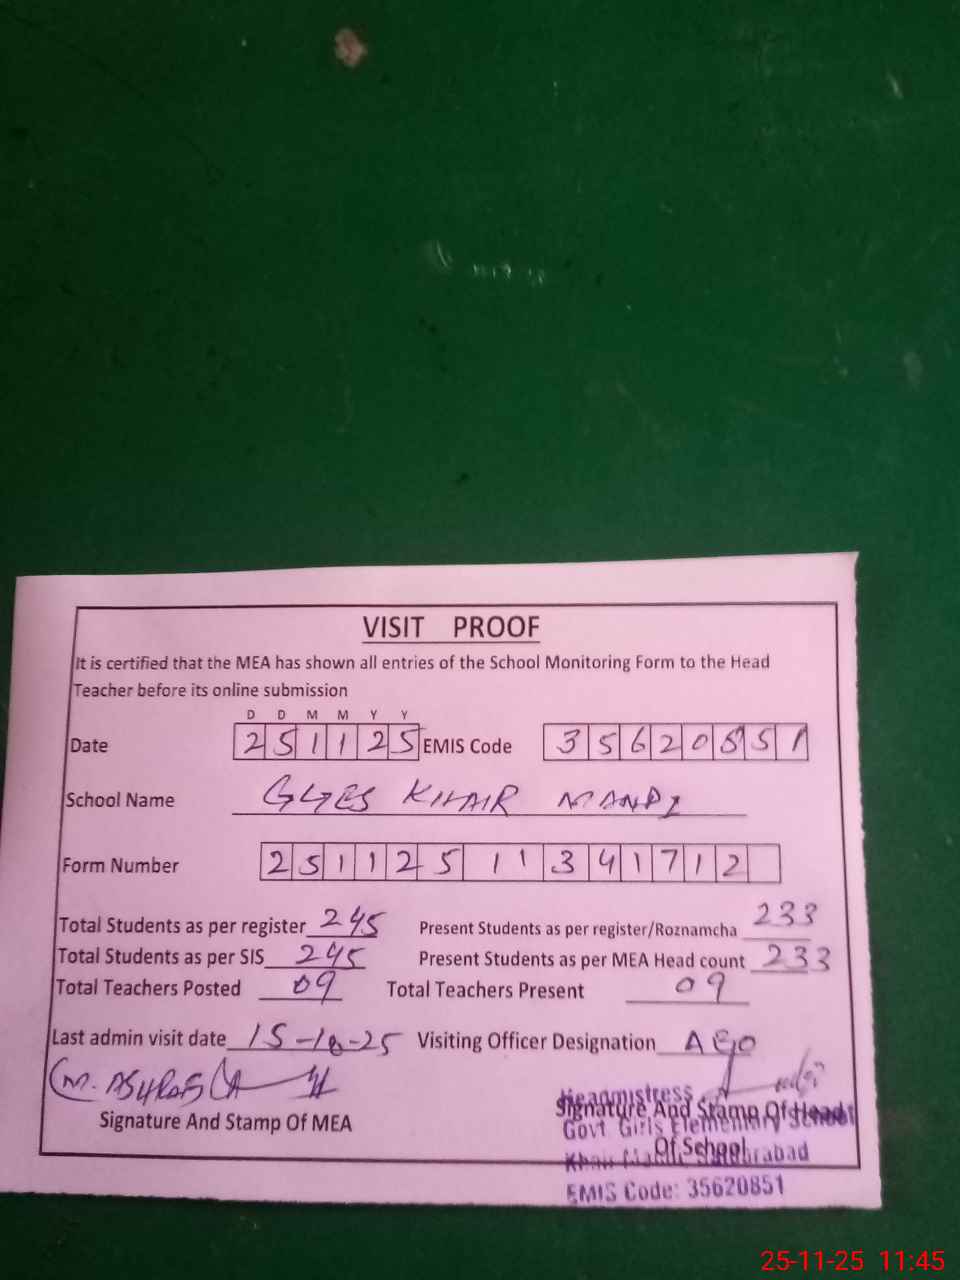 VISIT PROOF
It is certified that the MEA has shown all entries of the School Monitoring Form to the Head
Teacher before its online submission
D D M M Y Y
Date 251125 EMIS Code 35620851
School Name GGES KHAIR MANDI
Form Number 251125 11341712
Total Students as per register 245 Present Students as per register/Roznamcha 233
Total Students as per SIS 245 Present Students as per MEA Head count 233
Total Teachers Posted 09 Total Teachers Present 09
Last admin visit date 15-10-25 Visiting Officer Designation AEO
M. ASHRAF
Headmistress
Signature And Stamp Of MEA Signature And Stamp Of Head
Govt. Girls Elementary School
Of School
EMIS Code: 35620851
25-11-25 11:45